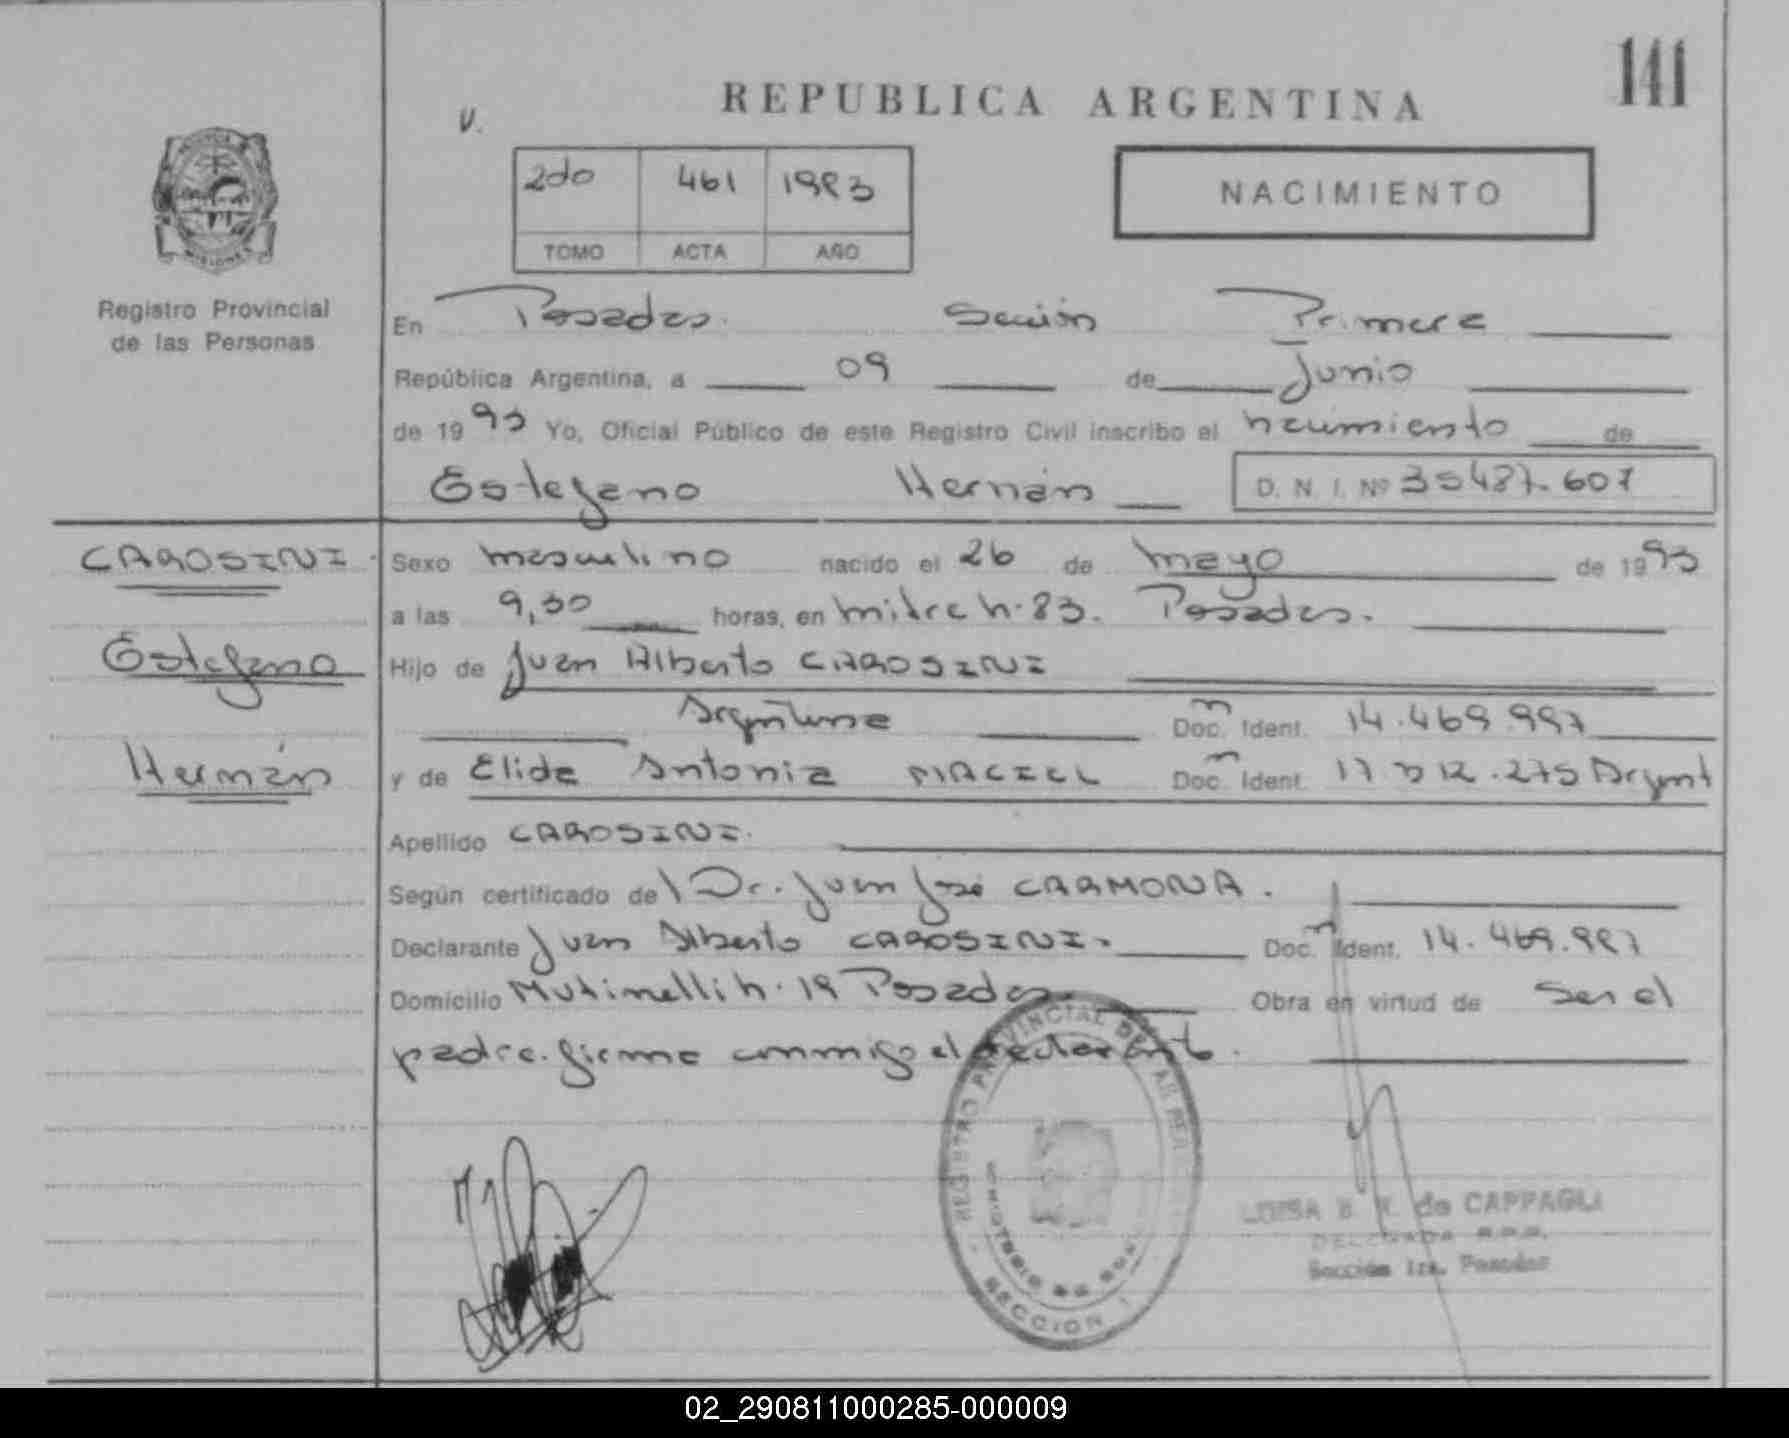 141
REPUBLICA ARGENTINA
V.
2do 461 1993
TOMO ACTA AÑO
NACIMIENTO
PROVINCIA DE MISIONES
Registro Provincial
de las Personas
En Posadas. Sección Primera
República Argentina, a 09 de Junio
de 1993 Yo, Oficial Público de este Registro Civil inscribo el nacimiento de
Estefano Hernán D. N. I. Nº 35487.607
CAROSINI. Sexo masculino nacido el 26 de mayo de 1993
a las 9,30 horas, en mitre n. 83. Posadas.
Estefano Hijo de Juan Alberto CAROSINI
Argentina Doc. Ident. 14.469.997
Hernán y de Elida Antonia MACIEL Doc. Ident. 17.312.275 Argent
Apellido CAROSINI.
Según certificado de l Dr. Juan José CARMONA.
Declarante Juan Alberto CAROSINI. Doc. Ident. 14.469.997
Domicilio Mutinelli n. 19 Posadas. Obra en virtud de Ser el
padre. firma conmigo el declarante.
REGISTRO PROVINCIAL DE LAS PER
MINISTERIO DE GOB
SECCION 1
LUISA B. de CAPPAGLI
DELEGADA R.P.P.
Sección 1ra. Posadas
02_290811000285-000009